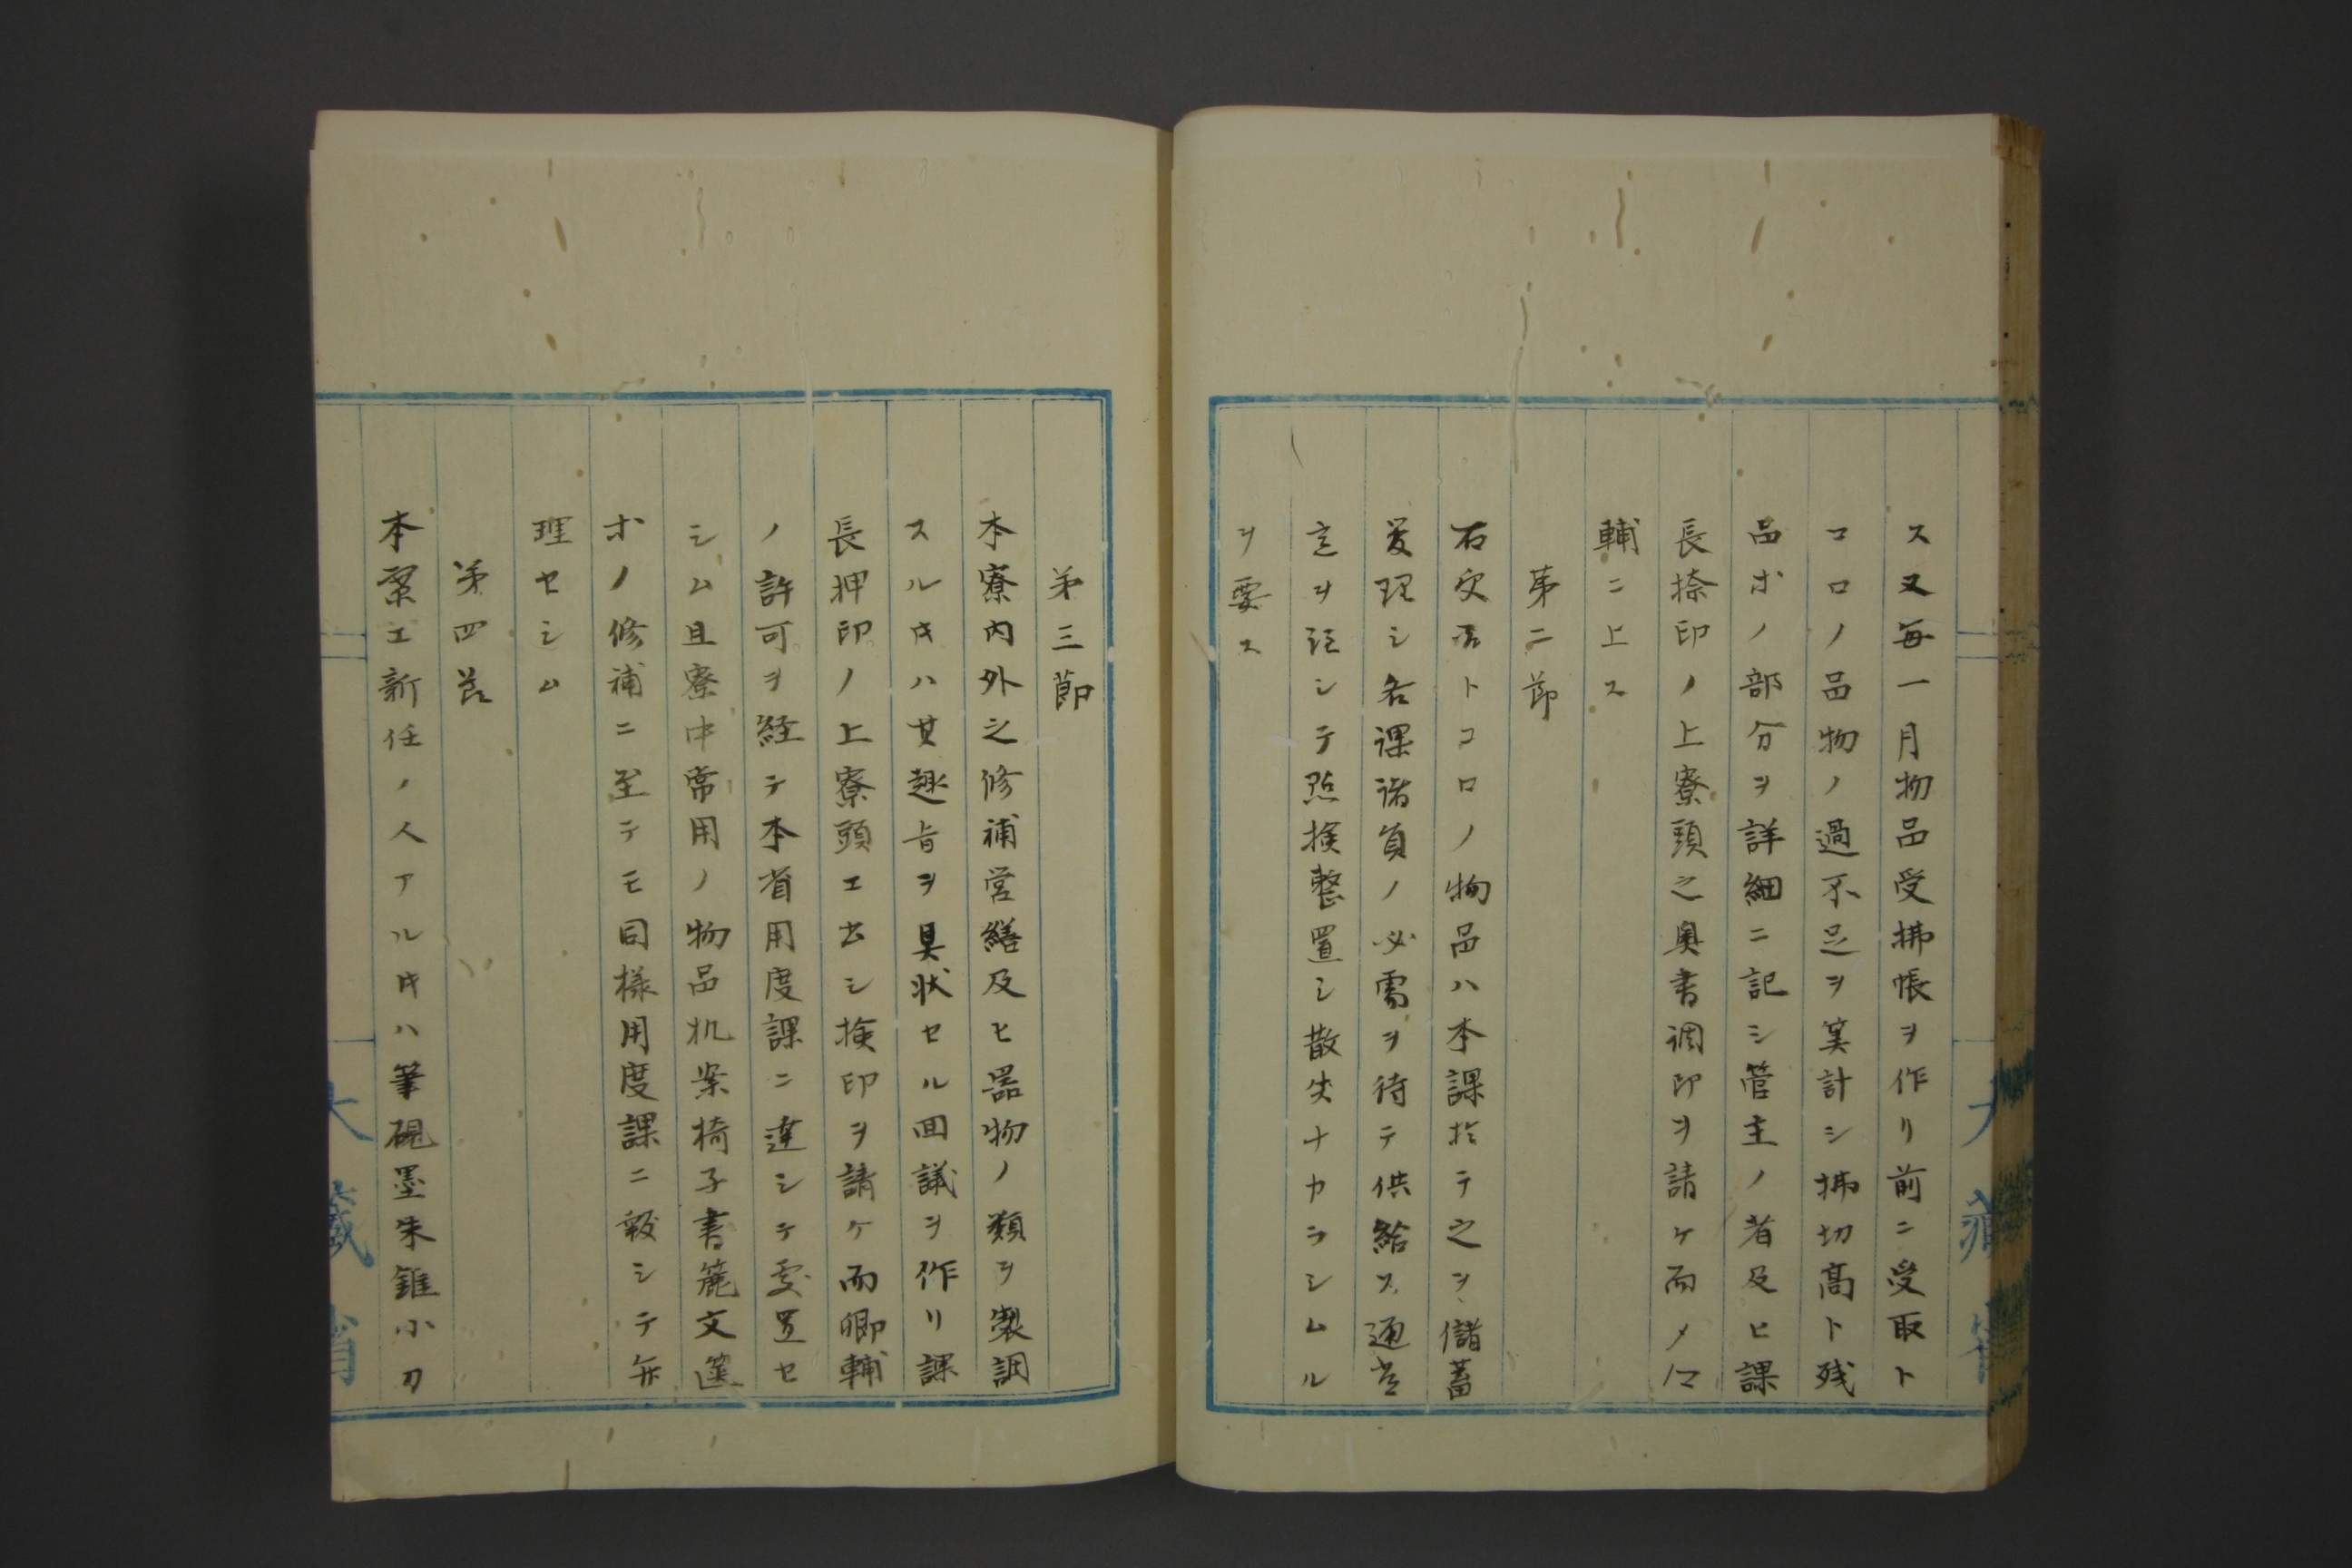 ス又每一月物品受拂帳ヲ作リ前ニ受取ト
コロノ品物ノ過不足ヲ筭計シ拂切高ト残
品ホノ部分ヲ詳細ニ記シ管主ノ者及ヒ課
長捺印ノ上寮頭之奥書調印ヲ請ケ而メ卿
輔ニ上ス
第二節
右突合トコロノ物品ハ本課於テ之ヲ儲蓄
受理シ各課諸員ノ必需ヲ待テ供給ス通常
意ヲ注シテ點検整置シ散失ナカラシムル
ヲ要ス
第三節
本寮内外之修補営繕及ヒ器物ノ類ヲ製調
スル寸ハ其趣旨ヲ具状セル回議ヲ作リ課
長押印ノ上寮頭エ出シ検印ヲ請ケ而卿輔
ノ許可ヲ経テ本省用度課ニ達シテ処置セ
シム且寮中常用ノ物品机案椅子書籠文篋
ホノ修補ニ至テモ同様用度課ニ報シテ弁
理セシム
第四節
本寮エ新任ノ人アル寸ハ筆硯墨朱錐小刀
大蔵省
大蔵省